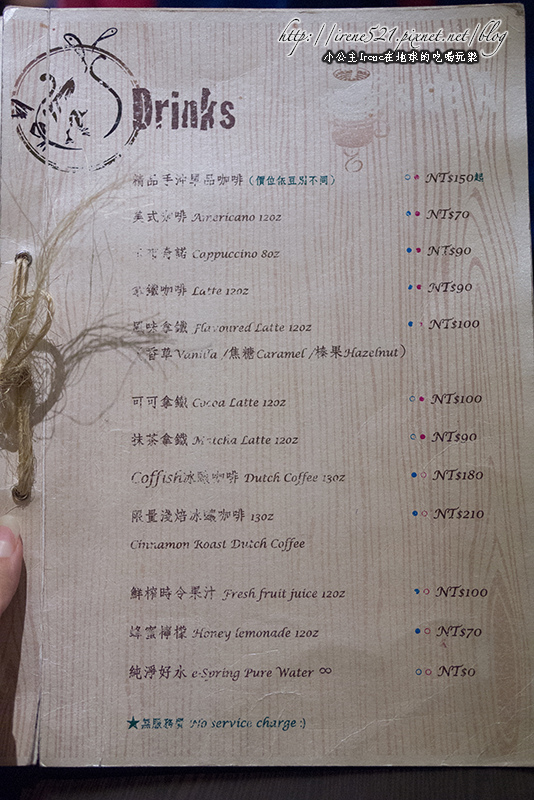 http://irene521.pixnet.net/blog
小公主Irene在地球的吃喝玩樂
Drinks
精品手沖單品咖啡（價位依豆別不同） NT$150起
美式咖啡 Americano 12oz NT$70
卡布奇諾 Cappuccino 8oz NT$90
拿鐵咖啡 Latte 12oz NT$90
風味拿鐵 Flavoured Latte 12oz NT$100
香草Vanilla /焦糖Caramel /榛果Hazelnut）
可可拿鐵 Cocoa Latte 12oz NT$100
抹茶拿鐵 Matcha Latte 12oz NT$90
Coffish冰釀咖啡 Dutch Coffee 13oz NT$180
限量淺焙冰釀咖啡 13oz NT$210
Cinnamon Roast Dutch Coffee
鮮榨時令果汁 Fresh fruit juice 12oz NT$100
蜂蜜檸檬 Honey lemonade 12oz NT$70
純淨好水 e-Spring Pure Water ∞ NT$0
★無服務費 No service charge :)